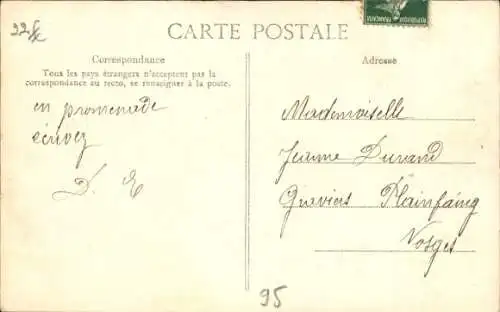 CARTE POSTALE
Correspondance
Tous les pays étrangers n'acceptent pas la
correspondance au recto, se renseigner à la poste.
en promenade
écrivez
D. E
Adresse
Mademoiselle
Jeanne Durand
Graviers Plainfaing
Vosges
95